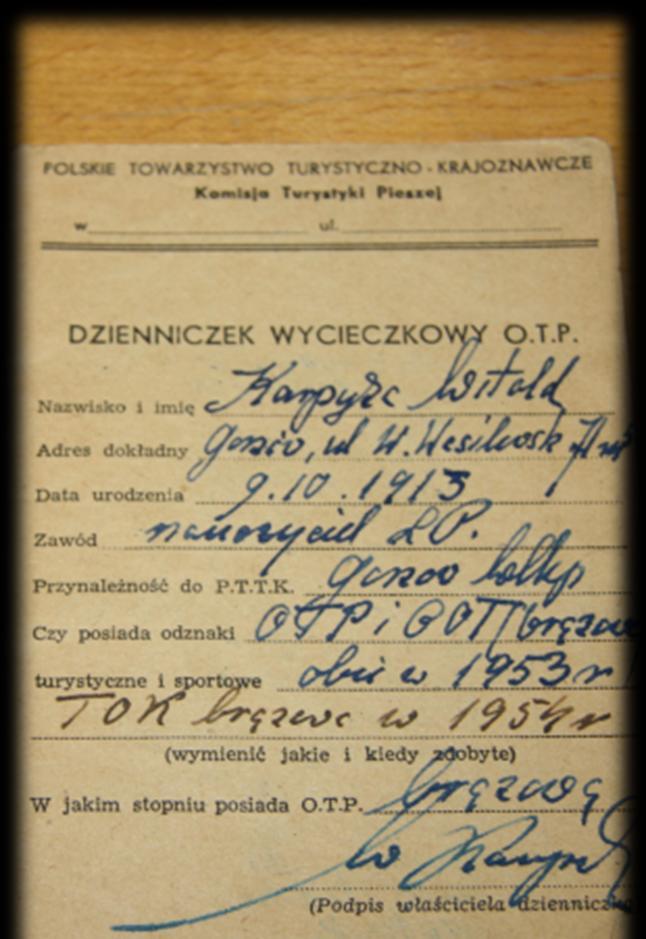 POLSKIE TOWARZYSTWO TURYSTYCZNO-KRAJOZNAWCZE
Komisja Turystyki Pieszej
w ul.
DZIENNICZEK WYCIECZKOWY O.T.P.
Nazwisko i imię Karpyza Witold
Adres dokładny Gorzów, ul W.
Data urodzenia 9.10.1913
Zawód nauczyciel L.P.
Przynależność do P.T.T.K. Gorzów wlkp
Czy posiada odznaki OTP i GOT brązowe
turystyczne i sportowe obie w 1953 r
TOK brązowa w 1954 r
(wymienić jakie i kiedy zdobyte)
W jakim stopniu posiada O.T.P. brązową
(Podpis właściciela